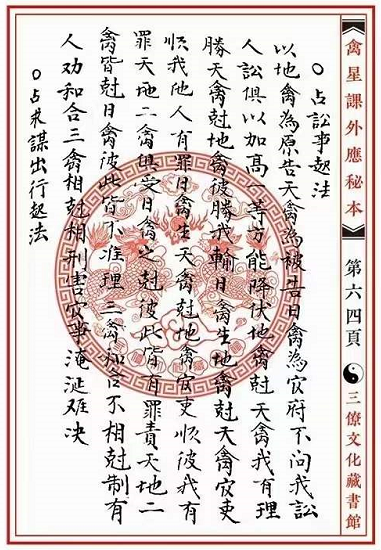 禽星課外應秘本
第六四頁
三僚文化藏書館
○占訟事起法
以地禽為原告天禽為被告日禽為官府不問我訟
人訟俱以加高一等方能降伏地禽尅天禽我有理
勝天禽尅地禽彼勝我輸日禽生地禽尅天禽官吏
順我他人有罪日禽生天禽尅地禽官吏順彼我有
罪天地二禽俱受日禽之尅彼此皆有罪責天地二
禽皆尅日禽彼此皆不准理三禽和合不相尅制有
人劝和合三禽相尅相刑害官事淹涎难决
○占求謀出行起法